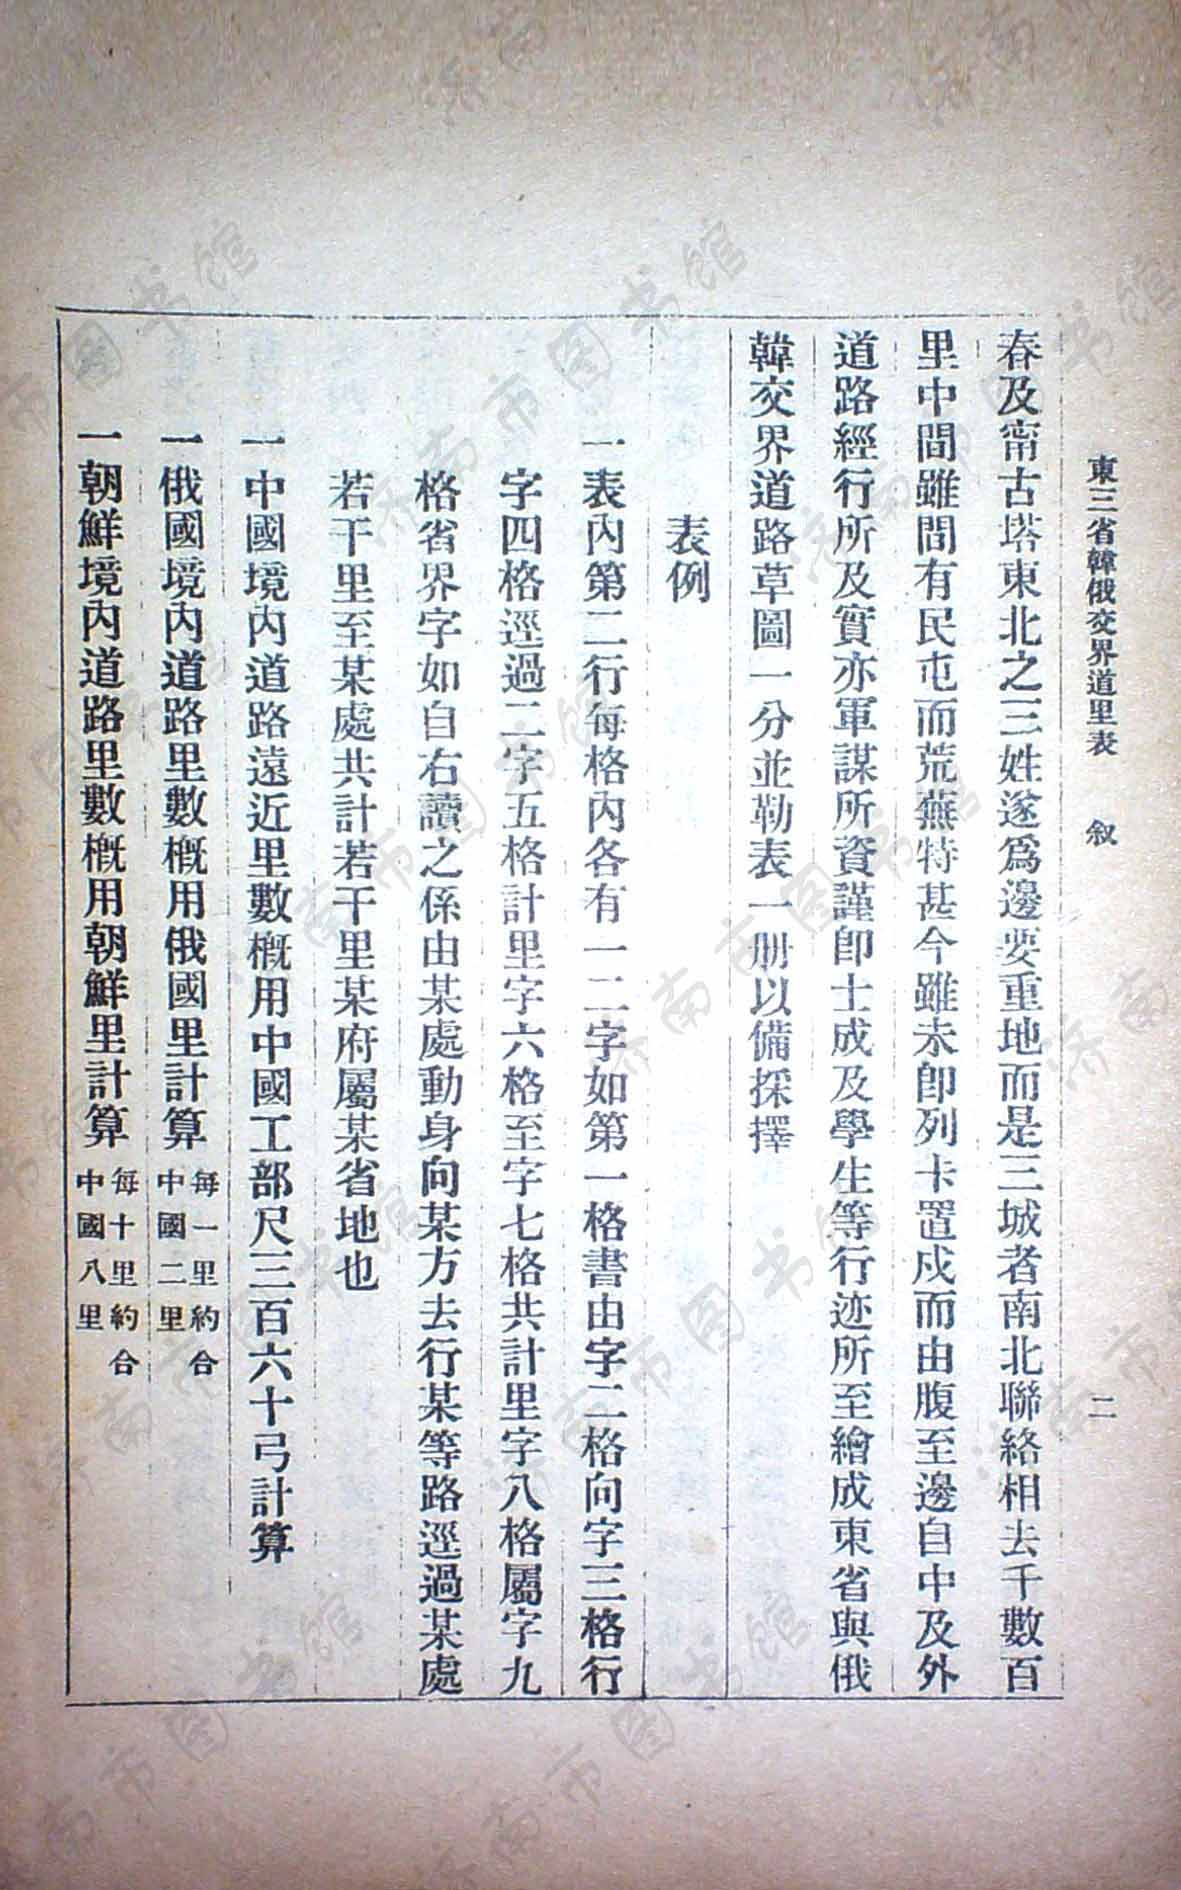 東三省韓俄交界道里表　叙　二
春及甯古塔東北之三姓遂爲邊要重地而是三城者南北聯絡相去千數百
里中間雖間有民屯而荒蕪特甚今雖未卽列卡置戍而由腹至邊自中及外
道路經行所及實亦軍謀所資謹卽士成及學生等行迹所至繪成東省與俄
韓交界道路草圖一分並勒表一册以備採擇
表例
一表內第二行每格內各有一二字如第一格書由字二格向字三格行
字四格逕過二字五格計里字六格至字七格共計里字八格屬字九
格省界字如自右讀之係由某處動身向某方去行某等路逕過某處
若干里至某處共計若干里某府屬某省地也
一中國境內道路遠近里數概用中國工部尺三百六十弓計算
一俄國境內道路里數概用俄國里計算每一里約合中國二里
一朝鮮境內道路里數概用朝鮮里計算每十里約合中國八里
济南市图书馆